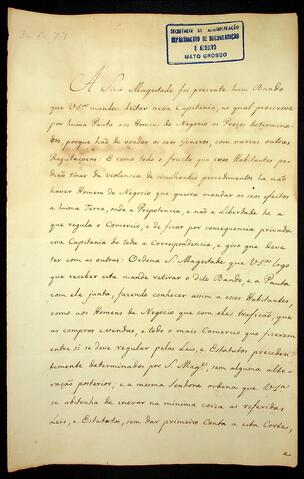 SECRETARIA DE ADMINISTRAÇÃO
DEPARTAMENTO DE DOCUMENTAÇÃO
E ARQUIVO
MATO GROSSO
A Sua Magestade foi prezente hum Bando
que V.S.ª mandou deitar nessa Capitania, no qual prescreve
por huma Pauta aos Homens de Negocio os Preços determina-
dos, porque hão de vender os seus Generos, com varias outras
Regulaçoens: E como todo o fructo que esses Habitantes po-
dião tirar da violencia de similhantes procedimentos he não
haver Homem de Negocio que queira mandar os seus effeitos
a huma Terra, onde a Prepotencia, e não a Liberdade he a
que regula o Comercio; e de ficar por consequencia privada
essa Capitania de toda a Correspondencia, e giro que deve
ter com as outras: Ordena S. Magestade que V.S.ª logo
que receber esta mande retirar o dito Bando, e a Pauta
com elle junta, fazendo conhecer assim a esses Habitantes,
como aos Homens de Negocio que com elles traficão, que
as compras e vendas, e todo o mais Comercio que fizerem
entre si se deve regular pelas Leis, e Estatutos preceden-
temente determinados por S. Mag.e, sem alguma alte-
ração posterior; e a mesma Senhora ordena que V.S.ª
se abstenha de inovar na minima coiza as referidas
Leis, e Estatutos, sem dar primeiro Conta a esta Corte,
e